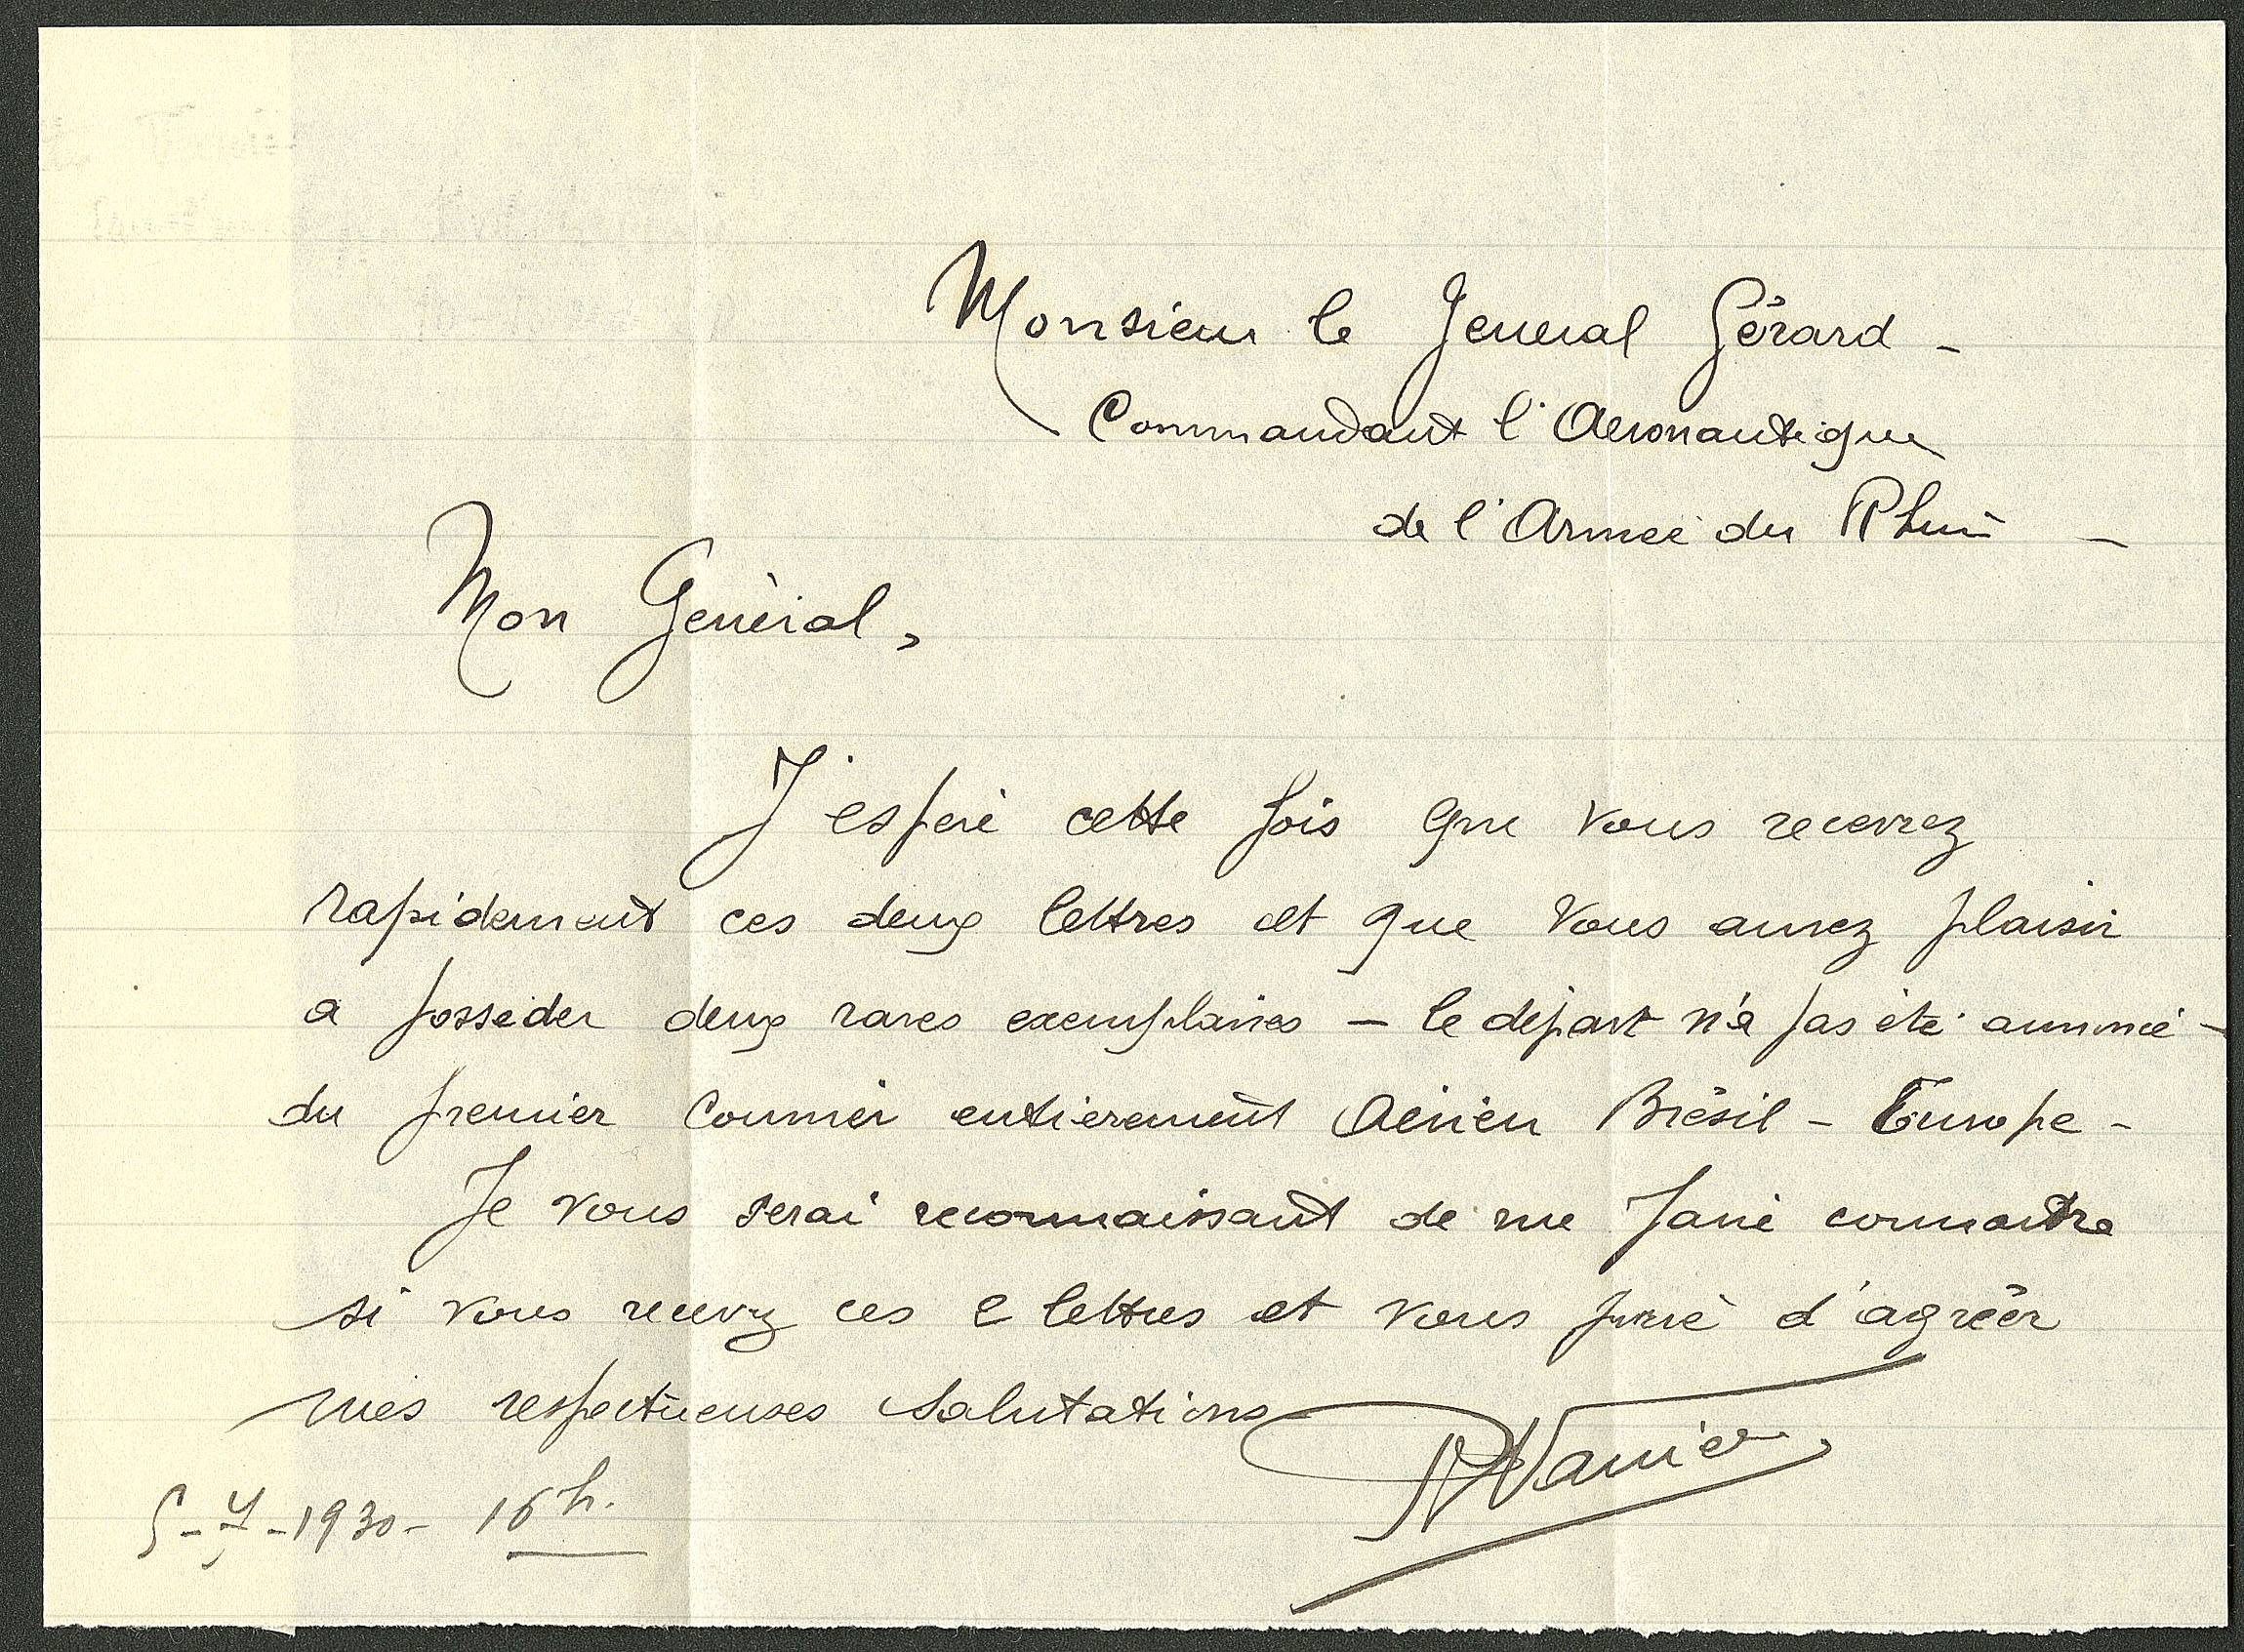 Monsieur le General Gérard -
Commandant l'Aeronautique
de l'Armée du Rhin -
Mon Général,
J'espère cette fois que vous recevrez
rapidement ces deux lettres et que vous aurez plaisir
a posseder deux rares exemplaires - le départ n'a pas été annoncé -
du premier Courrier entierement Aérien Brésil - Europe -
Je vous serai reconnaissant de me faire connaitre
si vous recevez ces 2 lettres et vous prie d'agréer
mes respectueuses salutations
RVanier
5-7-1930- 16 h.